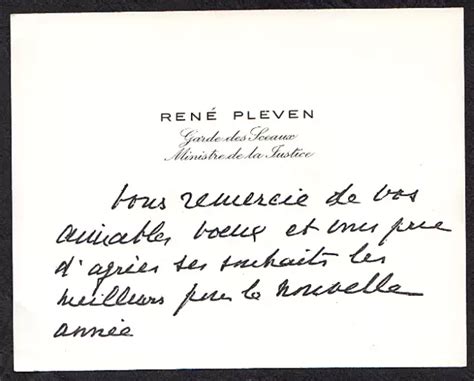 RENÉ PLEVEN
Garde des Sceaux
Ministre de la Justice
vous remercie de vos
aimables voeux et vous prie
d'agréer ses souhaits les
meilleurs pour la nouvelle
année